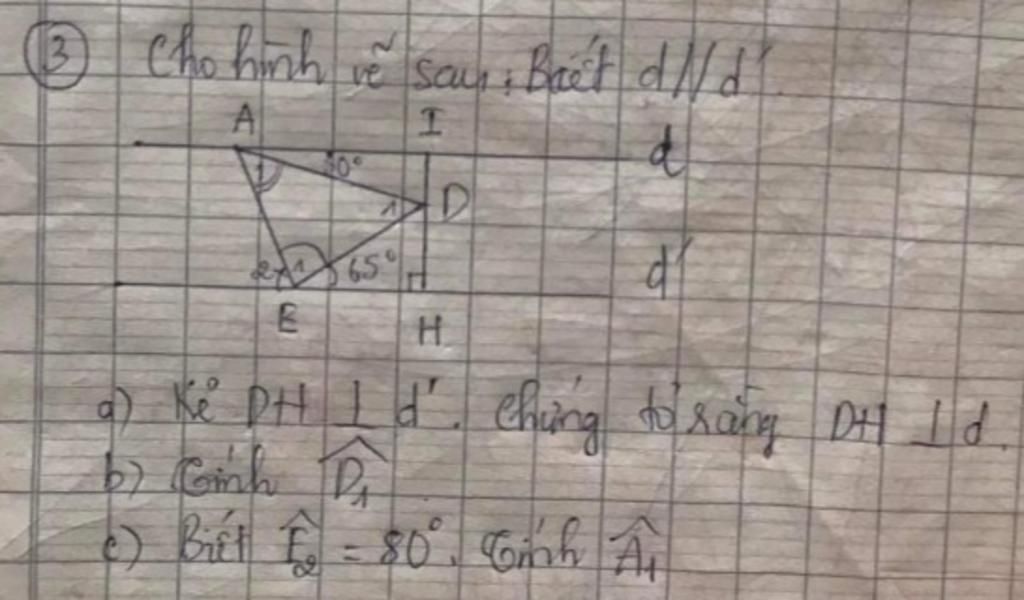 ③ Cho hình vẽ sau: Biết d//d'
A I
d
1 0°
1 D
2 1 65°
d'
E H
a) Kẻ DH ⊥ d'. Chứng tỏ rằng DH ⊥ d.
b) Tính D̂₁
c) Biết Ê₂ = 80°. Tính Â₁